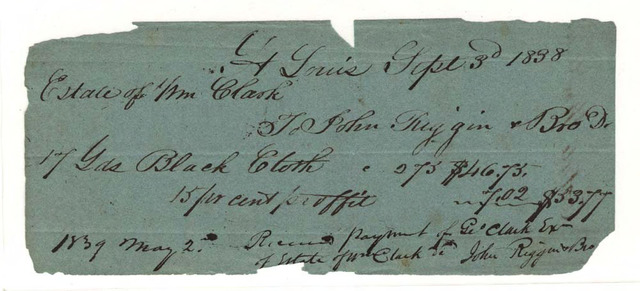 St Louis Sept 3d 1838
Estate of Wm Clark
To John Riggin & Bro Dr
17 Yds Black Cloth c 275 $46.75
15 per cent proffit 7.02 $53.77
1839 May 2d Received payment of Geo Clark Exr
of Estate of Wm Clark Decd John Riggin & Bro